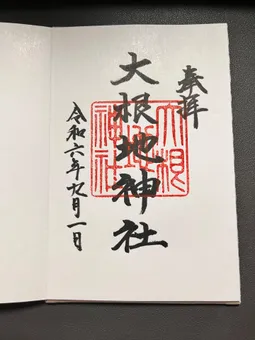 奉拝
大根地神社
令和六年九月一日
大根地神社